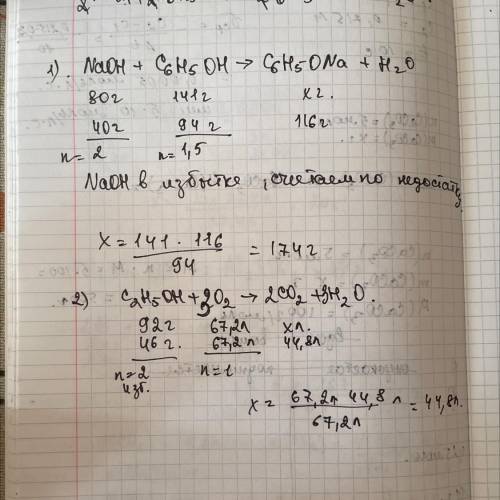 1). NaOH + C6H5OH → C6H5ONa + H2O
80г 141г x г.
40г 94г 116г
n=2 n=1,5
NaOH в избытке, считаем по недостатку
x = 141 · 116 / 94 = 174г
2) C2H5OH + 3O2 → 2CO2 + 3H2O.
92г 67,2л x л.
46г. 67,2л 44,8л
n=2 n=1
изб.
x = 67,2л · 44,8 л / 67,2л = 44,8л.